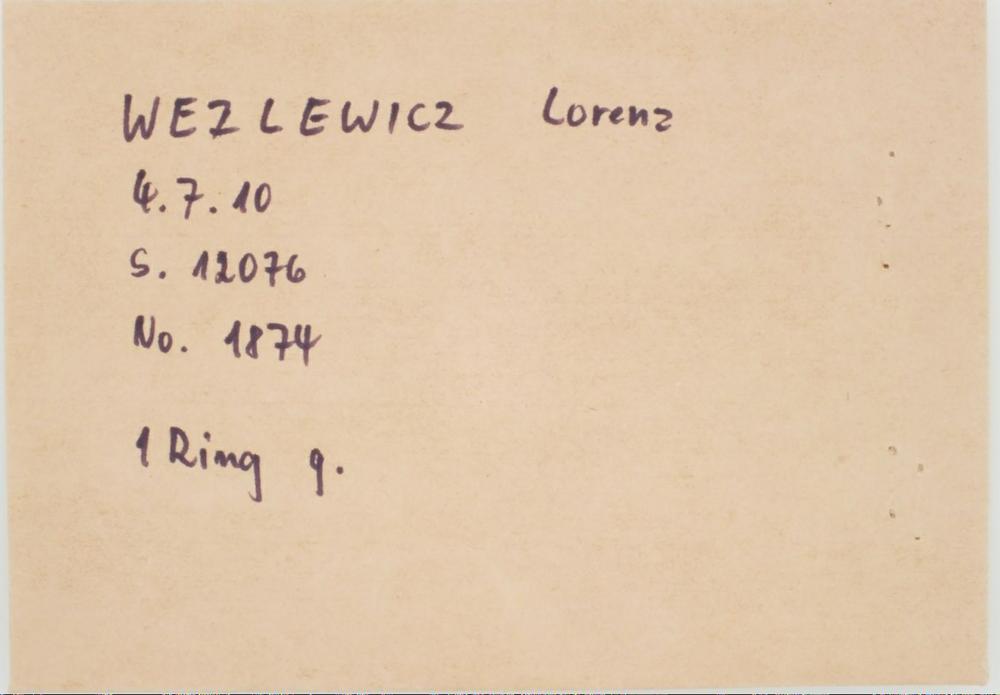 WEZLEWICZ Lorenz
4.7.10
S. 12076
No. 1874
1 Ring g.